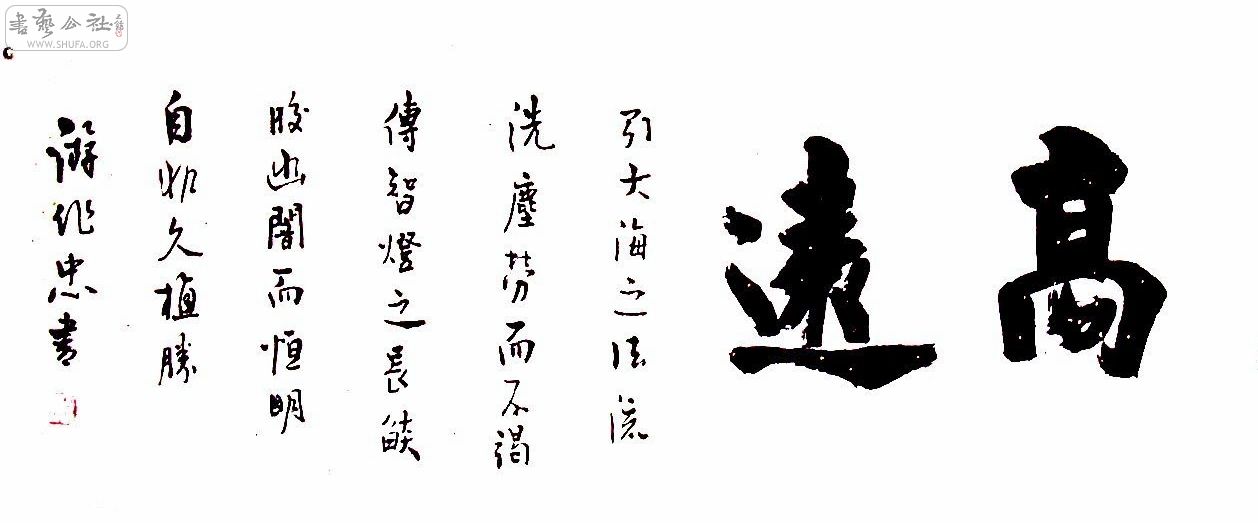 高遠
引大海之法流
洗塵勞而不竭
傳智燈之長燄
皎幽闇而恒明
自非久植勝
作忠書
書藝公社
WWW.SHUFA.ORG